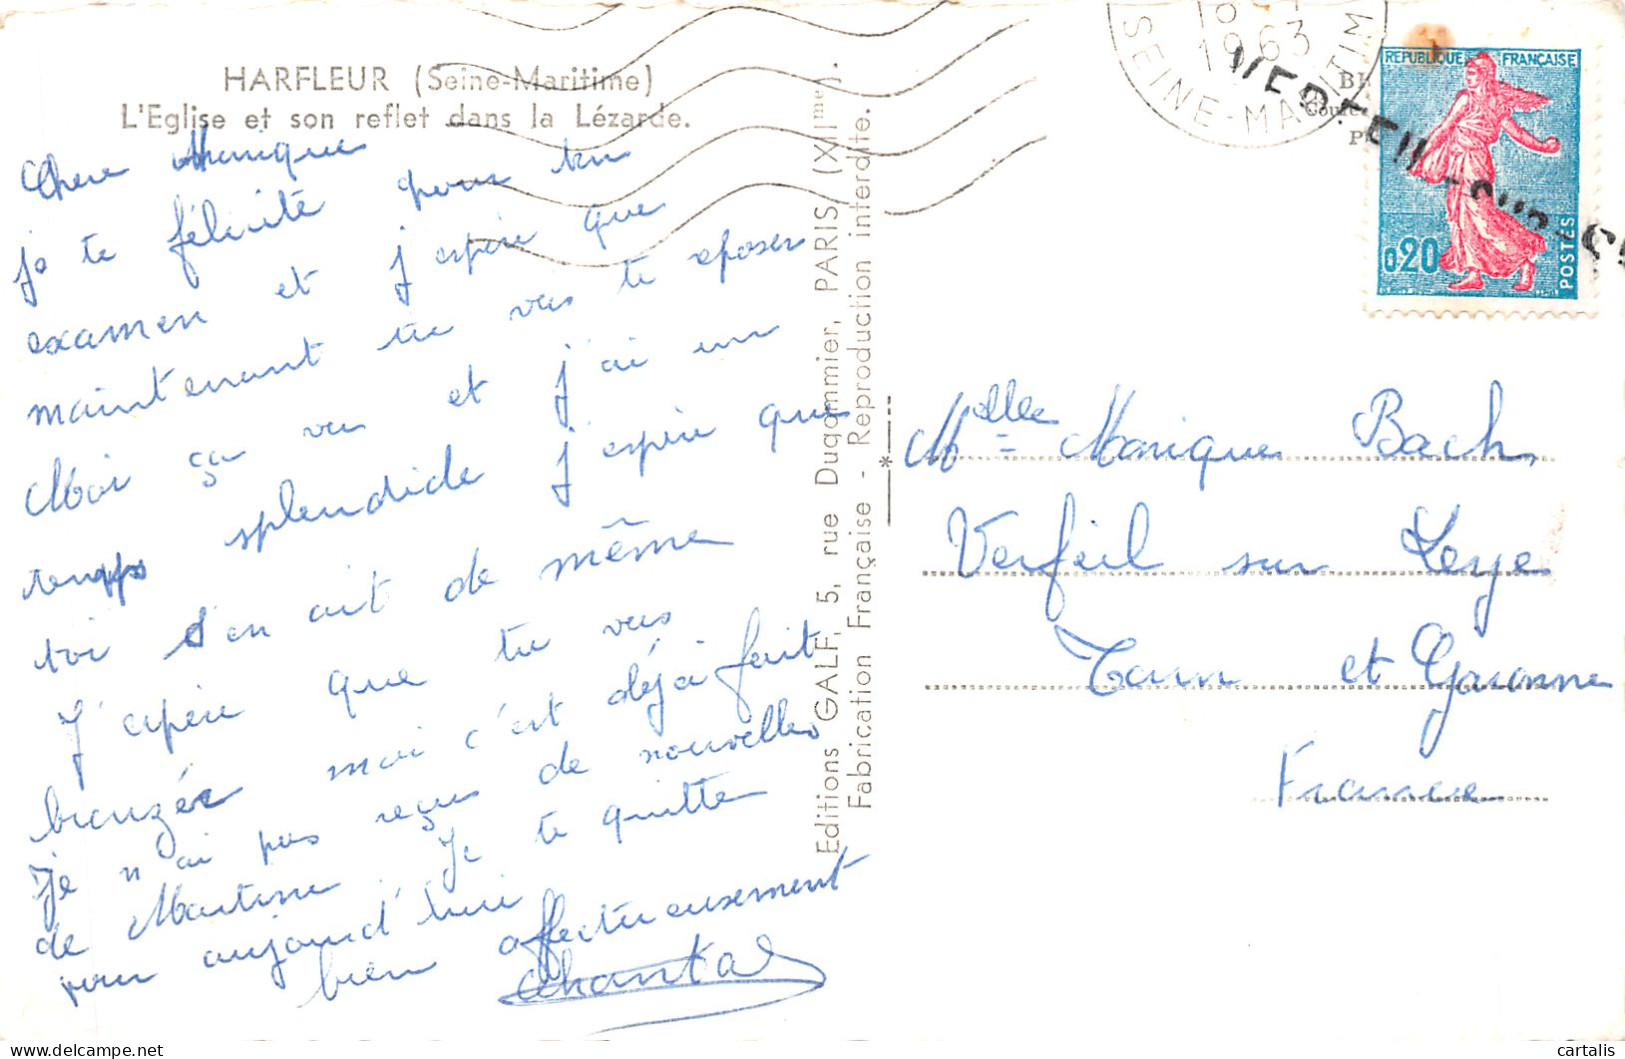 HARFLEUR (Seine-Maritime)
L'Eglise et son reflet dans la Lézarde.
Chere Monique
je te félicite pour ton
examen et j'espère que
maintenant tu vas te eposer
Moi ça va et j'ai un
temps splendide j'espère que
toi s'en ait de même
J'espère que tu vas
bronzée moi c'est déjà fait
Je n'ai pas reçus de nouvelles
de Martine. Je te quitte
pour aujourd'hui
bien affectueusement
Chantal
Editions GALF, 5, rue Dugommier, PARIS (XIIme).
Fabrication Française - Reproduction interdite.
1963
SEINE-MARITIM
REPUBLIQUE FRANÇAISE
0,20
POSTES
Melle Monique Bach
Verfeil sur Seye
Tarn et Garonne
France
cartalis